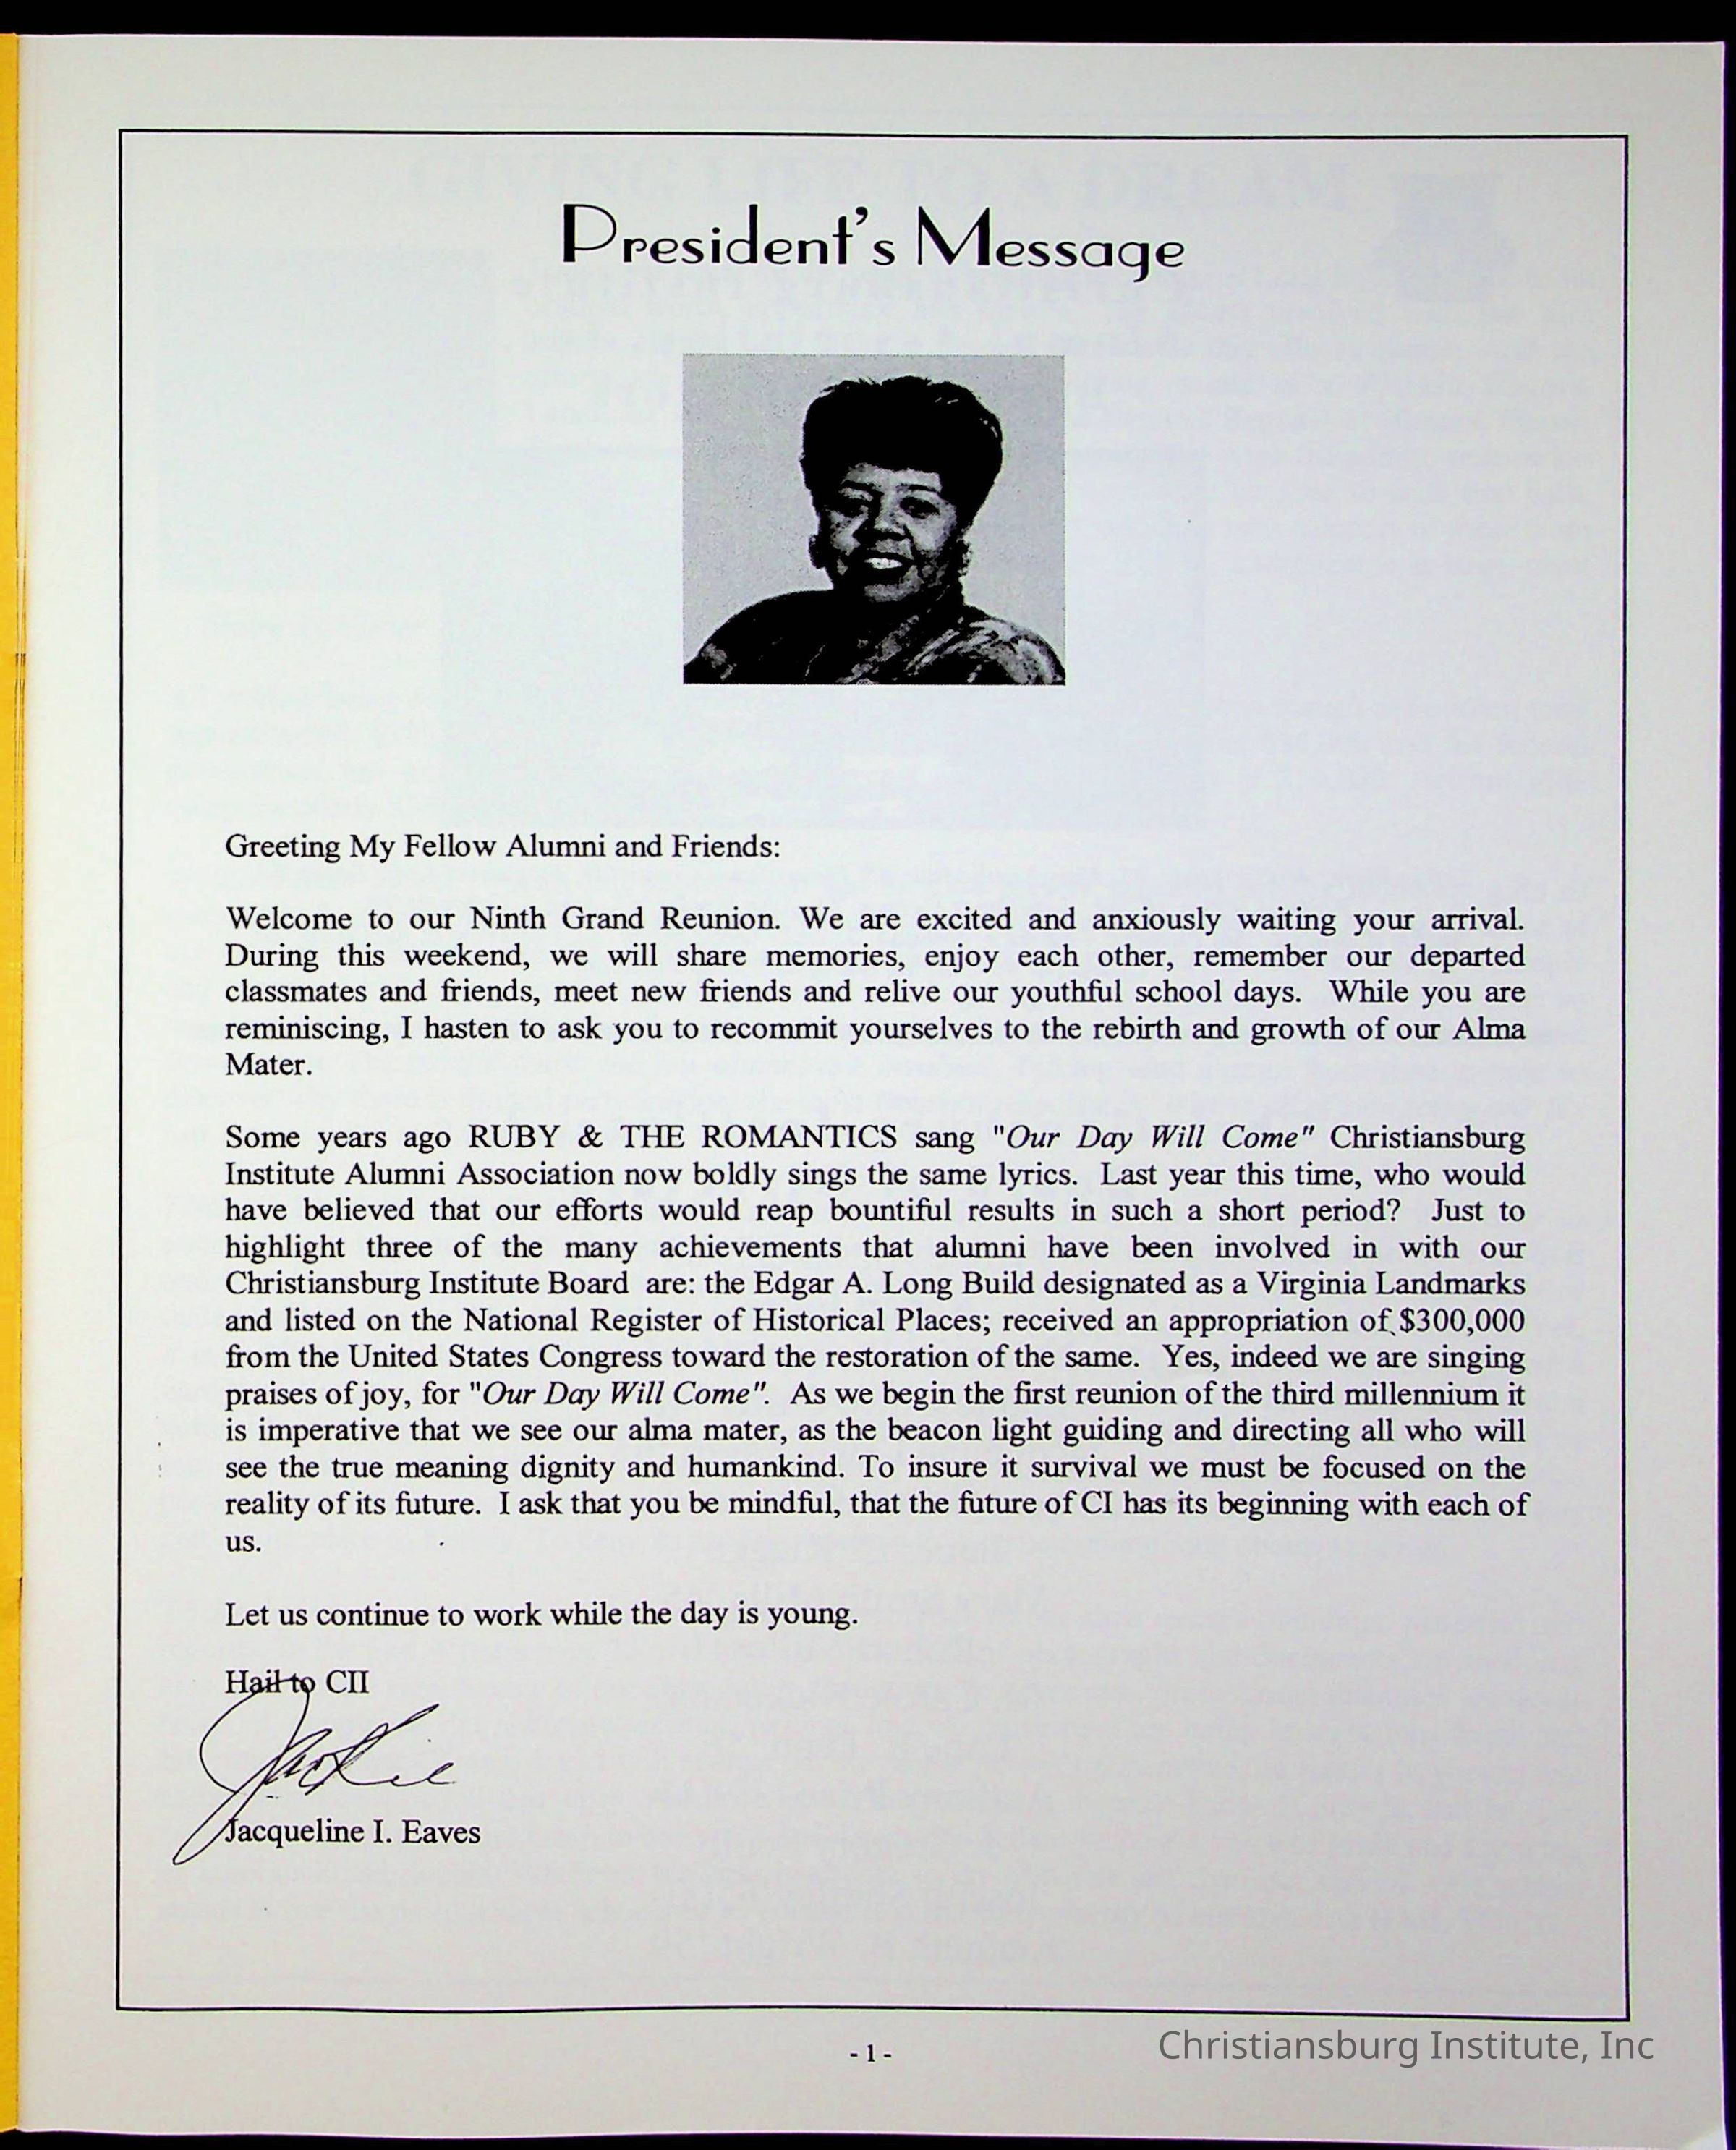 President's Message
Greeting My Fellow Alumni and Friends:
Welcome to our Ninth Grand Reunion. We are excited and anxiously waiting your arrival.
During this weekend, we will share memories, enjoy each other, remember our departed
classmates and friends, meet new friends and relive our youthful school days. While you are
reminiscing, I hasten to ask you to recommit yourselves to the rebirth and growth of our Alma
Mater.
Some years ago RUBY & THE ROMANTICS sang "Our Day Will Come" Christiansburg
Institute Alumni Association now boldly sings the same lyrics. Last year this time, who would
have believed that our efforts would reap bountiful results in such a short period? Just to
highlight three of the many achievements that alumni have been involved in with our
Christiansburg Institute Board are: the Edgar A. Long Build designated as a Virginia Landmarks
and listed on the National Register of Historical Places; received an appropriation of $300,000
from the United States Congress toward the restoration of the same. Yes, indeed we are singing
praises of joy, for "Our Day Will Come". As we begin the first reunion of the third millennium it
is imperative that we see our alma mater, as the beacon light guiding and directing all who will
see the true meaning dignity and humankind. To insure it survival we must be focused on the
reality of its future. I ask that you be mindful, that the future of CI has its beginning with each of
us.
Let us continue to work while the day is young.
Hail to CII
Jackie
Jacqueline I. Eaves
- 1 -
Christiansburg Institute, Inc